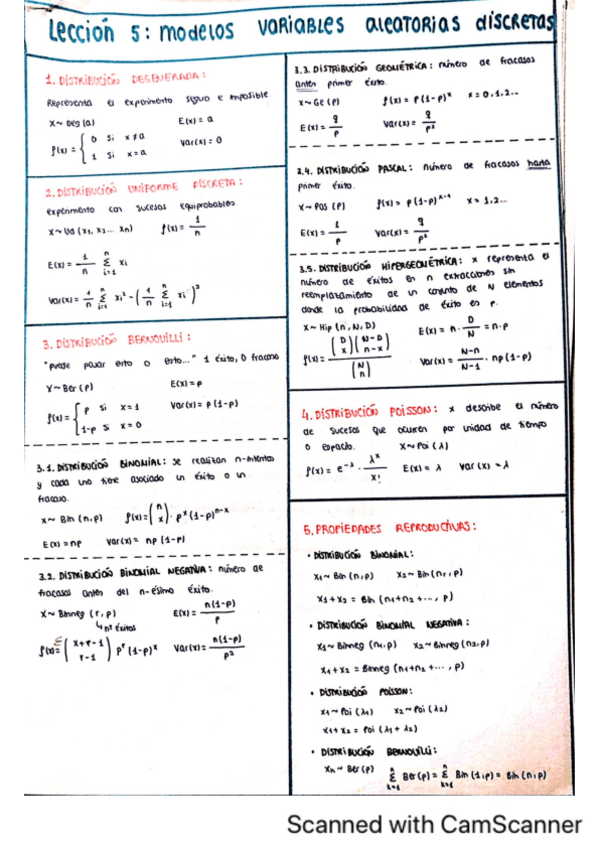 Lección 5: modelos variables aleatorias discretas
1. DISTRIBUCIÓN DEGENERADA:
Representa el experimento seguro e imposible
X ~ Deg (a)   E(x) = a
f(x) = { 0 si x ≠ a
1 si x = a   Var(x) = 0
2. DISTRIBUCIÓN UNIFORME DISCRETA:
experimento con sucesos equiprobables
X ~ Ud (x1, x2... xn)   f(x) = 1/n
E(x) = 1/n Σ(i=1, n) xi
Var(x) = 1/n Σ(i=1, n) xi² - (1/n Σ(i=1, n) xi)²
3. DISTRIBUCIÓN BERNOUILLI:
"puede pasar esto o esto..." 1 éxito, 0 fracaso
X ~ Ber (p)   E(x) = p
f(x) = { p si x = 1   Var(x) = p(1-p)
1-p si x = 0
3.1. DISTRIBUCIÓN BINOMIAL: se realizan n-intentos
y cada uno tiene asociado un éxito o un
fracaso.
X ~ Bin (n, p)   f(x) = (n x) · p^x (1-p)^n-x
E(x) = np   Var(x) = np (1-p)
3.2. DISTRIBUCIÓN BINOMIAL NEGATIVA: número de
fracasos antes del n-ésimo éxito.
X ~ Binneg (r, p)   E(x) = n(1-p)/p
↳ nº éxitos
f(x) = (x+r-1 r-1) p^r (1-p)^x   Var(x) = n(1-p)/p²
3.3. DISTRIBUCIÓN GEOMÉTRICA: número de fracasos
antes primer éxito.
X ~ Ge (p)   f(x) = p(1-p)^x   x = 0, 1, 2...
E(x) = q/p   Var(x) = q/p²
3.4. DISTRIBUCIÓN PASCAL: número de fracasos hasta
primer éxito.
X ~ Pas (p)   f(x) = p(1-p)^x-1   x = 1, 2...
E(x) = 1/p   Var(x) = q/p²
3.5. DISTRIBUCIÓN HIPERGEOMÉTRICA: x representa el
número de éxitos en n extracciones sin
reemplazamiento de un conjunto de N elementos
donde la probabilidad de éxito es p.
X ~ Hip (n, N, D)   E(x) = n · D/N = n · p
f(x) = (D x)(N-D n-x) / (N n)   Var(x) = N-n/N-1 · np(1-p)
4. DISTRIBUCIÓN POISSON: x describe el número
de sucesos que ocurren por unidad de tiempo
o espacio.   X ~ Poi (λ)
f(x) = e^-λ · λ^x/x!   E(x) = λ   Var (x) = λ
5. PROPIEDADES REPRODUCTIVAS:
• DISTRIBUCIÓN BINOMIAL:
x1 ~ Bin (n, p)   x2 ~ Bin (nr, p)
x1 + x2 = Bin (n1+n2+..., p)
• DISTRIBUCIÓN BINOMIAL NEGATIVA:
x1 ~ Binneg (n1, p)   x2 ~ Binneg (n2, p)
x1 + x2 = Binneg (n1+n2+..., p)
• DISTRIBUCIÓN POISSON:
x1 ~ Poi (λ1)   x2 ~ Poi (λ2)
x1 + x2 = Poi (λ1 + λ2)
• DISTRIBUCIÓN BERNOUILLI:
xn ~ Ber (p)   Σ(k=1, n) Ber (p) = Σ(k=1, n) Bin (1, p) = Bin (n, p)
Scanned with CamScanner